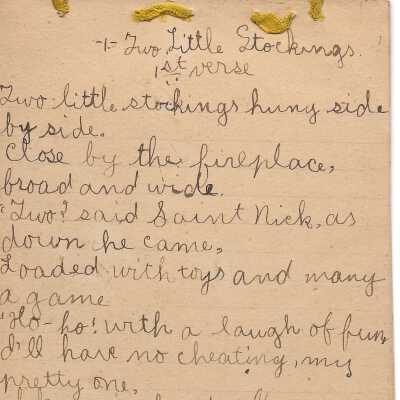 -1- Two Little Stockings.
1st verse
Two little stockings hung side
by side.
Close by the fireplace,
broad and wide.
"Two? said Saint Nick, as
down he came,
Loaded with toys and many
a game
"Ho-ho! with a laugh of fun,
I'll have no cheating, my
pretty one,